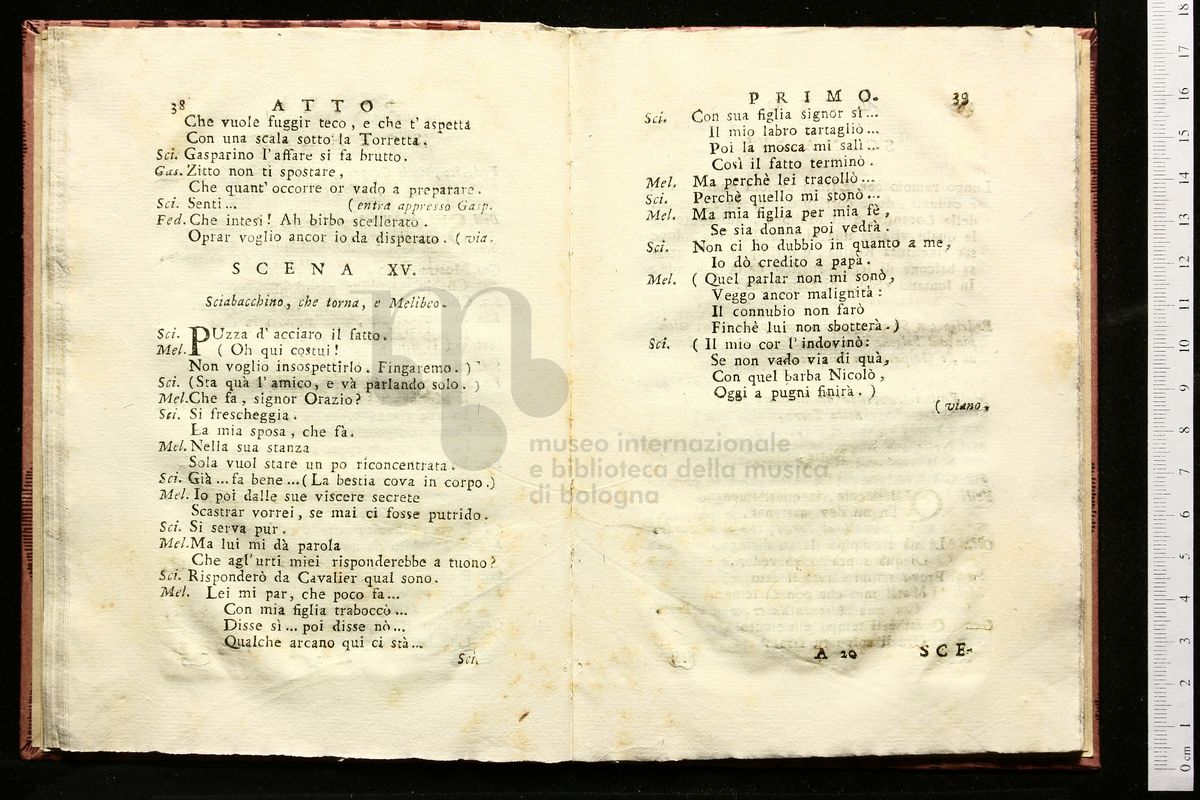 38 ATTO
Che vuole fuggir teco, e che t' aspetta
Con una scala sotto la Torretta.
Sci. Gasparino l'affare si fa brutto.
Gas. Zitto non ti spostare,
Che quant' occorre or vado a preparare.
Sci. Senti... (entra appresso Gasp.
Fed. Che intesi! Ah birbo scellerato.
Oprar voglio ancor io da disperato. (via.
SCENA XV.
Sciabacchino, che torna, e Melibeo.
Sci. PUzza d' acciaro il fatto.
Mel. (Oh qui costui!
Non voglio insospettirlo. Fingaremo.)
Sci. (Sta quà l'amico, e và parlando solo.)
Mel. Che fa, signor Orazio?
Sci. Si frescheggia.
La mia sposa, che fà.
Mel. Nella sua stanza
Sola vuol stare un po riconcentrata.
Sci. Già... fa bene... (La bestia cova in corpo.)
Mel. Io poi dalle sue viscere secrete
Scastrar vorrei, se mai ci fosse putrido.
Sci. Si serva pur.
Mel. Ma lui mi dà parola
Che agl'urti miei risponderebbe a tuono?
Sci. Risponderò da Cavalier qual sono.
Mel. Lei mi par, che poco fa...
Con mia figlia traboccò...
Disse sì... poi disse nò...
Qualche arcano qui ci stà...
Sci.
PRIMO. 39
Sci. Con sua figlia signor sì...
Il mio labro tartagliò...
Poi la mosca mi salì...
Così il fatto terminò.
Mel. Ma perchè lei tracollò...
Sci. Perchè quello mi stonò...
Mel. Ma mia figlia per mia fè,
Se sia donna poi vedrà.
Sci. Non ci ho dubbio in quanto a me,
Io dò credito a papà.
Mel. (Quel parlar non mi sonò,
Veggo ancor malignità:
Il connubio non farò
Finchè lui non sbotterà.)
Sci. (Il mio cor l'indovinò:
Se non vado via di quà,
Con quel barba Nicolò,
Oggi a pugni finirà.)
(viano.
A 20 SCE-
museo internazionale
e biblioteca della musica
di bologna
0 cm 1 2 3 4 5 6 7 8 9 10 11 12 13 14 15 16 17 18